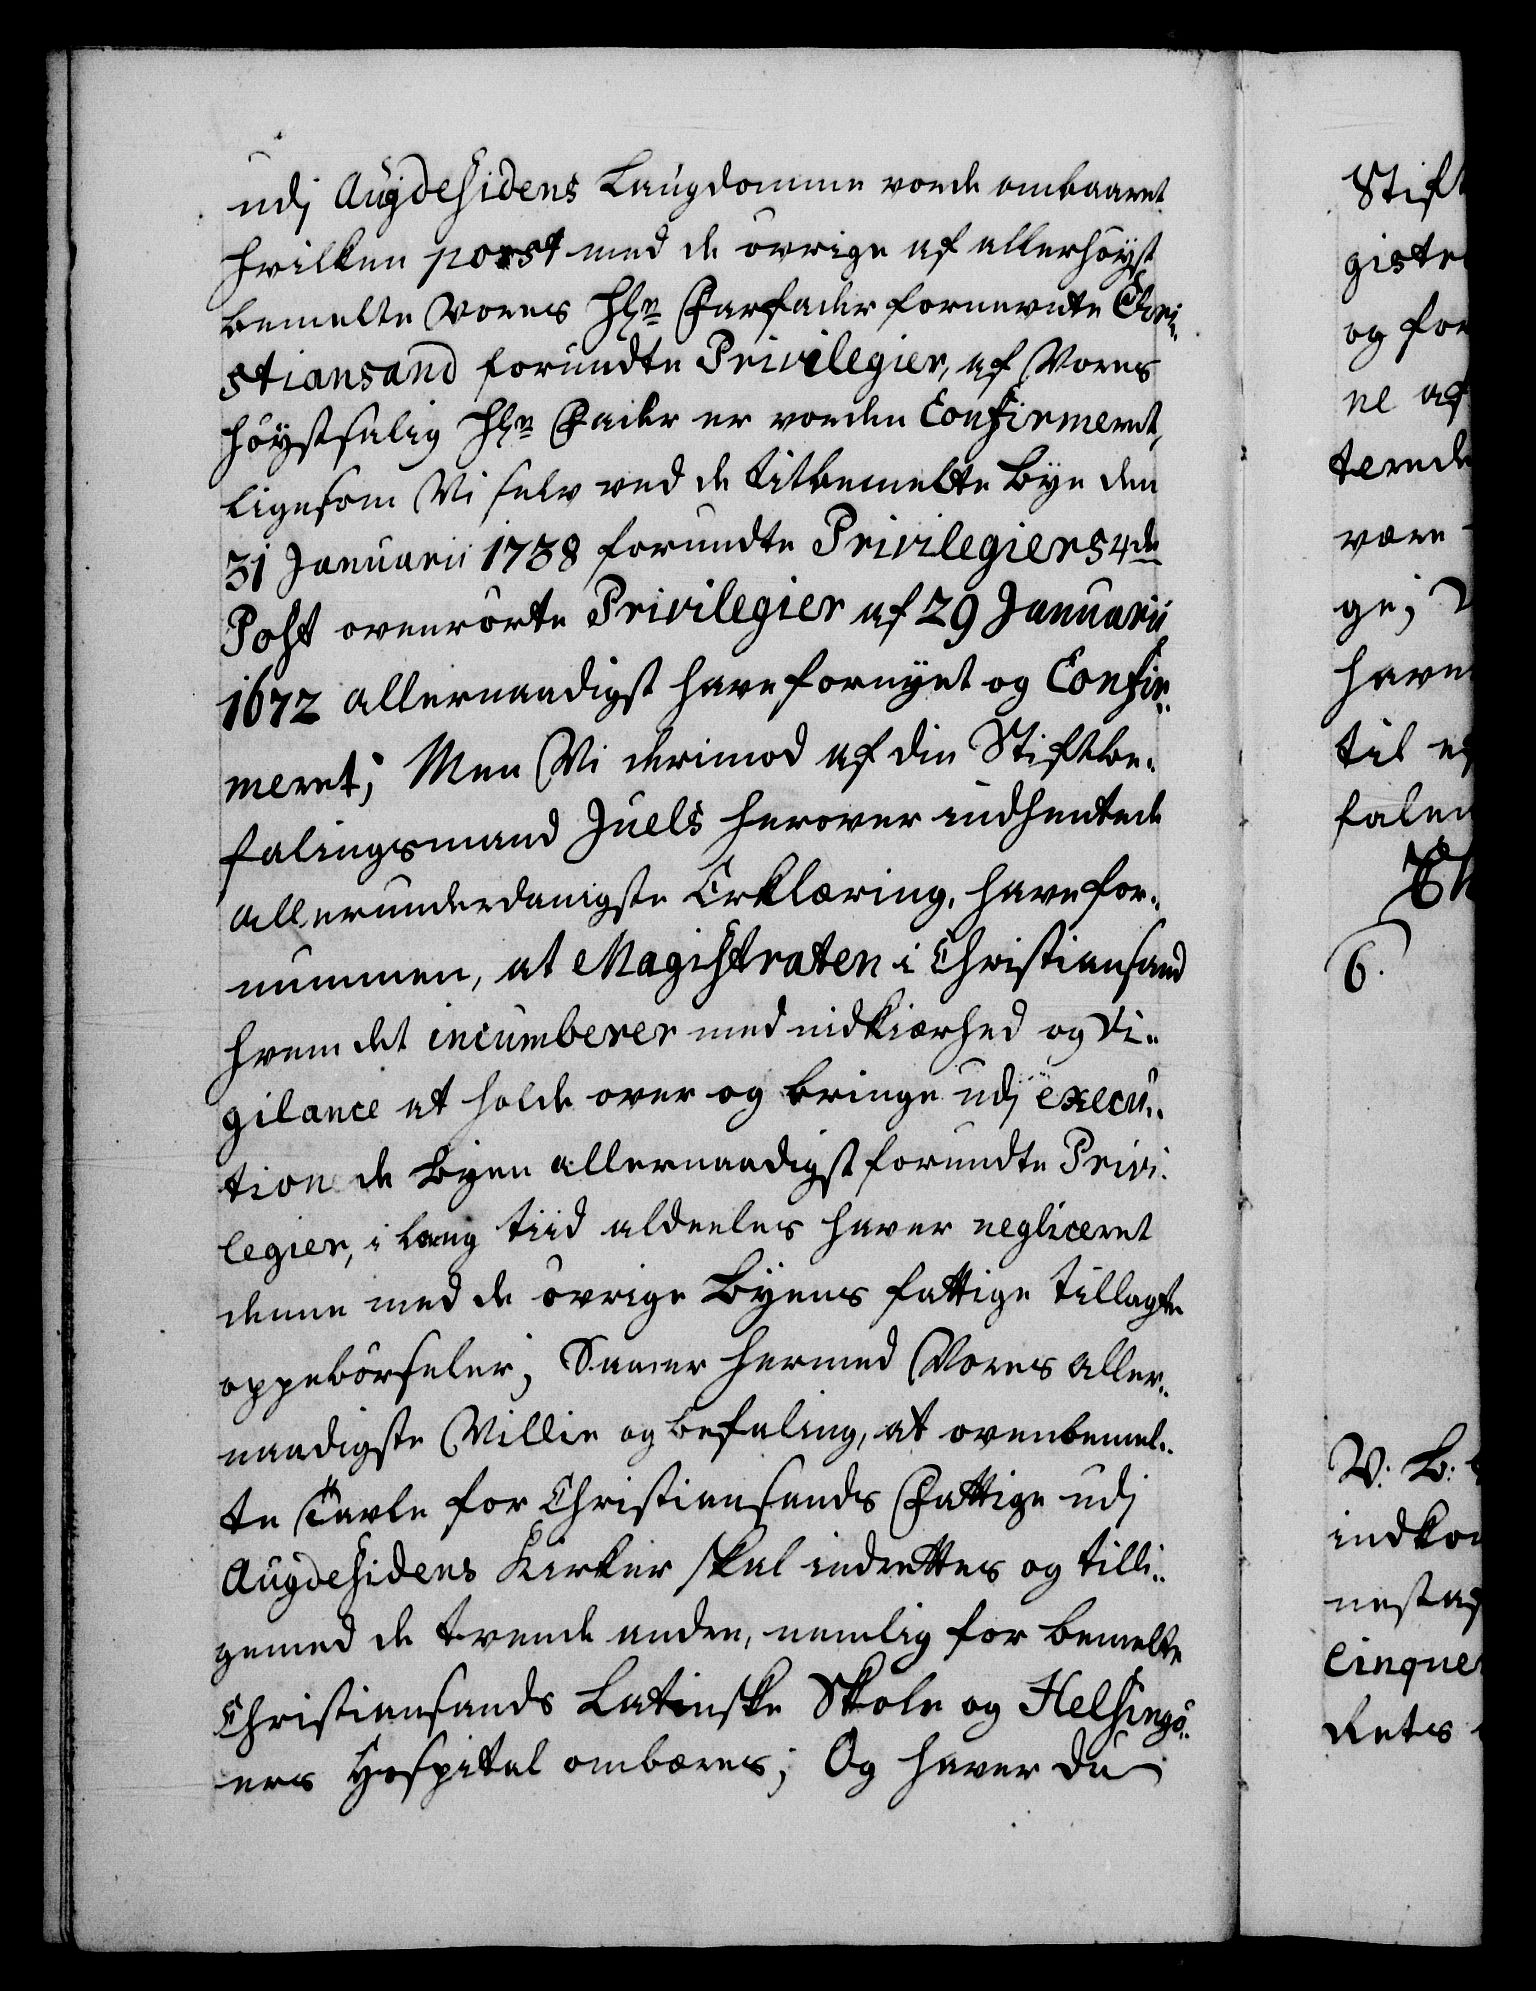 udj Augdesidens Laugdomme vorde ombaaret
hvilken posst med de övrige af allerhöyst
bemelte Vores Hhr Farfader fornevnte Chri-
stiansand forundte Privilegier, af Vores
höystsalig Hhr Fader er vorden Confirmeret,
ligesom Vi selv ved de titbemelte Bye den
31 Januarii 1738 forundte Privilegiers 4de
Post ovenrörte Privilegier af 29 Januarii
1672 allernaadigst have fornyet og Confir-
meret; Men Vi derimod af din Stiftbe-
falingsmand Juels herover indhentede
allerunderdanigste Erklæring, have for-
nummen, at Magistraten i Christiansand
hvem det incumberer med nidkiærhed og Vi-
gilance at holde over og bringe udj execu-
tion de Byen allernaadigst forundte Privi-
legier, i lang tiid aldeeles haver negliceret
denne med de övrige Byens fattige tillagte
oppebörseler; Saa er hermed Vores aller-
naadigste Villie og befaling, at ovenbemel-
te Tavle for Christiansands Fattige udj
Augdesidens Kirker skal indrettes og tilli-
gemed de tvende andre, nemlig for bemelte
Christiansands Latinske Skole og Helsingö-
ers Hospital ombæres; Og haver du
Stift
gistr
og for
ne af
terede
være
ge;
have
til
falen
6.
V. B:
indkom
nestaf
Cinque
Retes